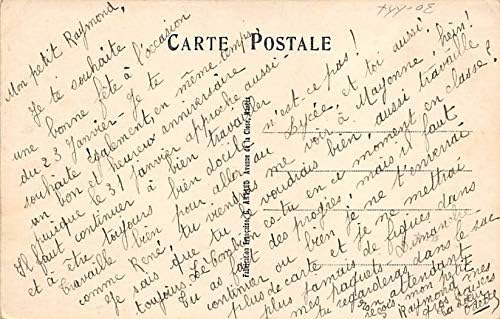 30-1-14
CARTE POSTALE
Mon petit Raymond,
Je te souhaite
une bonne fête à l'occasion
du 23 Janvier - Je te
souhaite également, en même temps
un bon et heureux anniversaire
puisque le 31 janvier approche aussi -
Il faut continuer à bien travailler
et à être toujours bien docile
Travaille bien pour aller au
comme René, tu viendras me
Je sais que tu
toujours
Lycée, et toi aussi,
n'est-ce pas !
voir à Mayenne, hein !
voudrais bien aussi travaille
es-tu en ce moment en classe ?
tu as fait des progrès, mais il faut
continuer ou bien je ne t'enverrai
plus de carte et je ne mettrai
plus jamais de figues dans
mes paquets. Dimanche
tu regarderas dans le sac
En attendant
reçois mon petit
Raymond
gros baisers
Odette
Fabrication Française